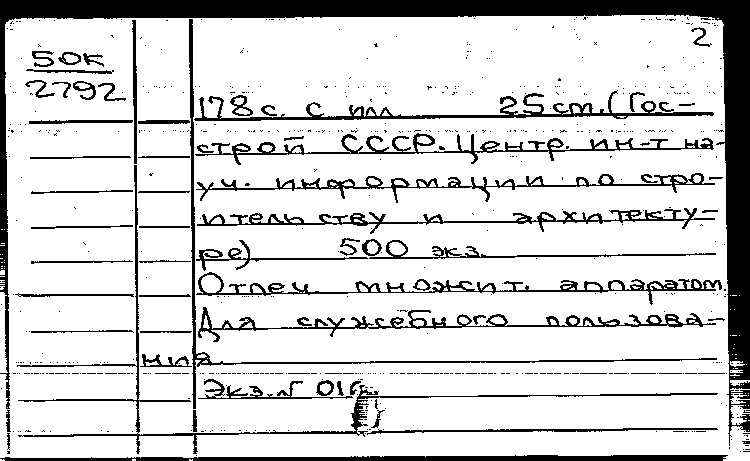 2
50К
2792
178 с. с илл. 25 см. (Гос-
строй СССР. Центр. ин-т на-
уч. информации по стро-
ительству и архитекту-
ре). 500 экз.
Отпеч. множит. аппаратом
Для служебного пользова-
ния.
Экз. №